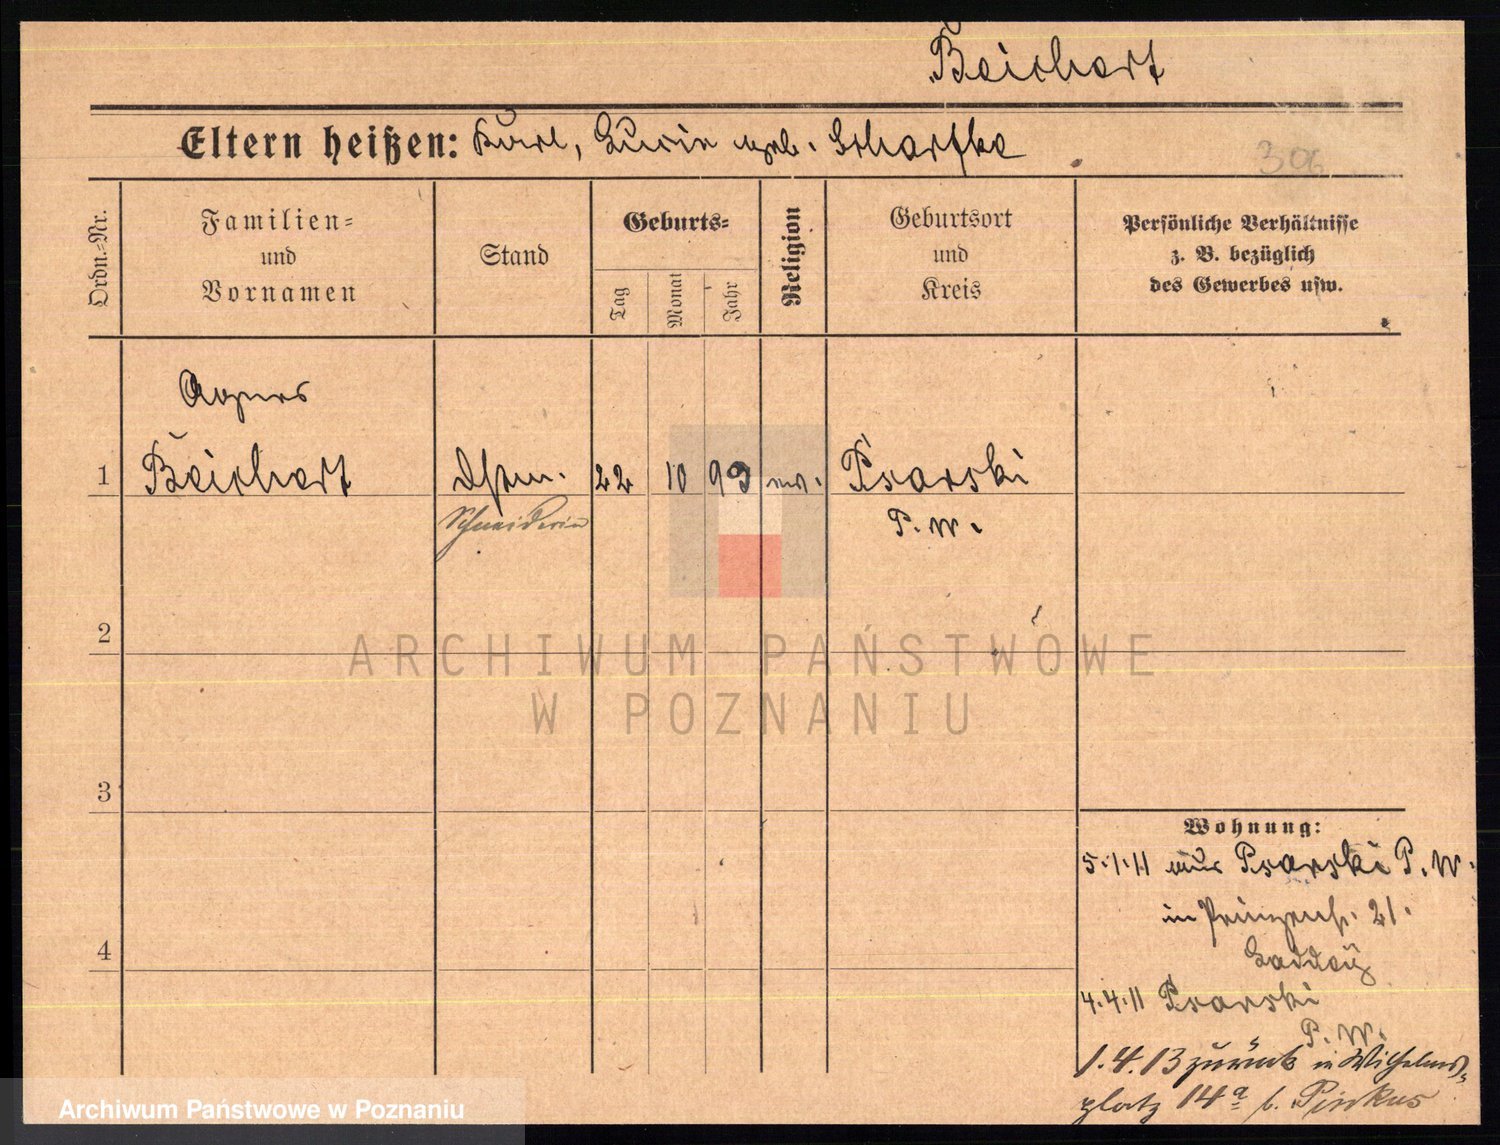 Beichert
Eltern heißen: Karl, Lucie geb. Schartke
306
Ordn.=Nr.
Familien=
und
Vornamen
Stand
Geburts=
Tag
Monat
Jahr
Religion
Geburtsort
und
Kreis
Persönliche Verhältnisse
z. B. bezüglich
des Gewerbes usw.
Agnes
1 Beichert 22 10 93 ev. Psarski
Schneiderin P. W.
2
3
4
Wohnung:
5.1.11 aus Psarski P. W.
in Prinzenstr. 21.
4.4.11 Psarski
P. W.
1.4.13 zurück in Wilhelms=
platz 14a b. Pinkus
ARCHIWUM PAŃSTWOWE
W POZNANIU
Archiwum Państwowe w Poznaniu